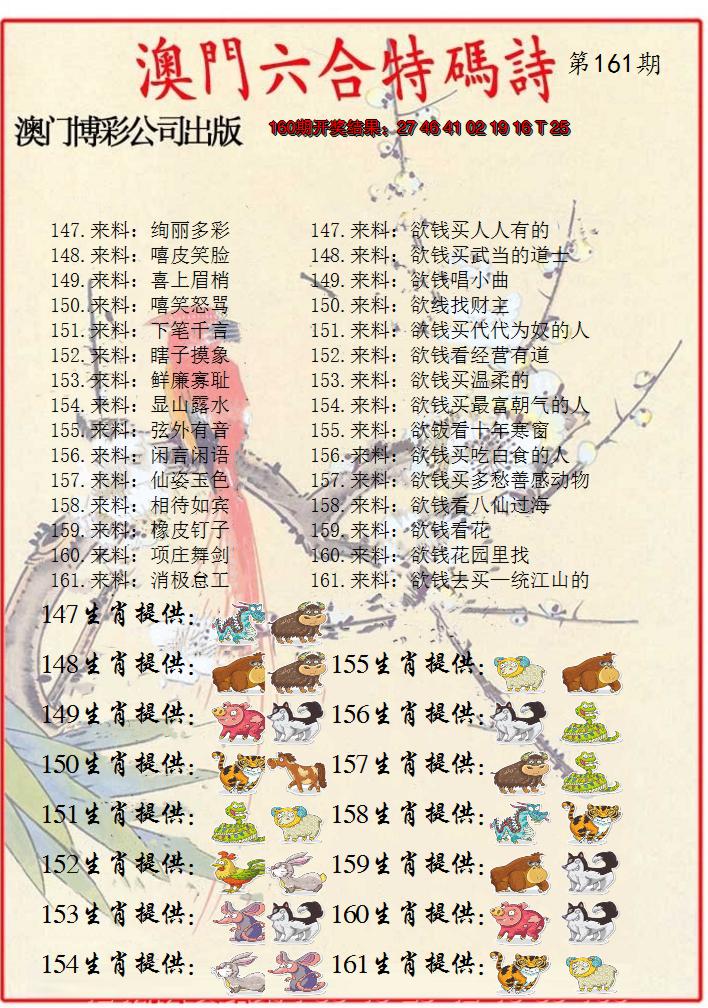 澳門六合特碼詩 第161期
澳门博彩公司出版 160期开奖结果：27 46 41 02 19 16 T 25
147.来料：绚丽多彩 147.来料：欲钱买人人有的
148.来料：嘻皮笑脸 148.来料：欲钱买武当的道士
149.来料：喜上眉梢 149.来料：欲钱唱小曲
150.来料：嘻笑怒骂 150.来料：欲线找财主
151.来料：下笔千言 151.来料：欲钱买代代为奴的人
152.来料：瞎子摸象 152.来料：欲钱看经营有道
153.来料：鲜廉寡耻 153.来料：欲钱买温柔的
154.来料：显山露水 154.来料：欲钱买最富朝气的人
155.来料：弦外有音 155.来料：欲钱看十年寒窗
156.来料：闲言闲语 156.来料：欲钱买吃白食的人
157.来料：仙姿玉色 157.来料：欲钱买多愁善感动物
158.来料：相待如宾 158.来料：欲钱看八仙过海
159.来料：橡皮钉子 159.来料：欲钱看花
160.来料：项庄舞剑 160.来料：欲钱花园里找
161.来料：消极怠工 161.来料：欲钱去买一统江山的
147生肖提供：
148生肖提供： 155生肖提供：
149生肖提供： 156生肖提供：
150生肖提供： 157生肖提供：
151生肖提供： 158生肖提供：
152生肖提供： 159生肖提供：
153生肖提供： 160生肖提供：
154生肖提供： 161生肖提供：